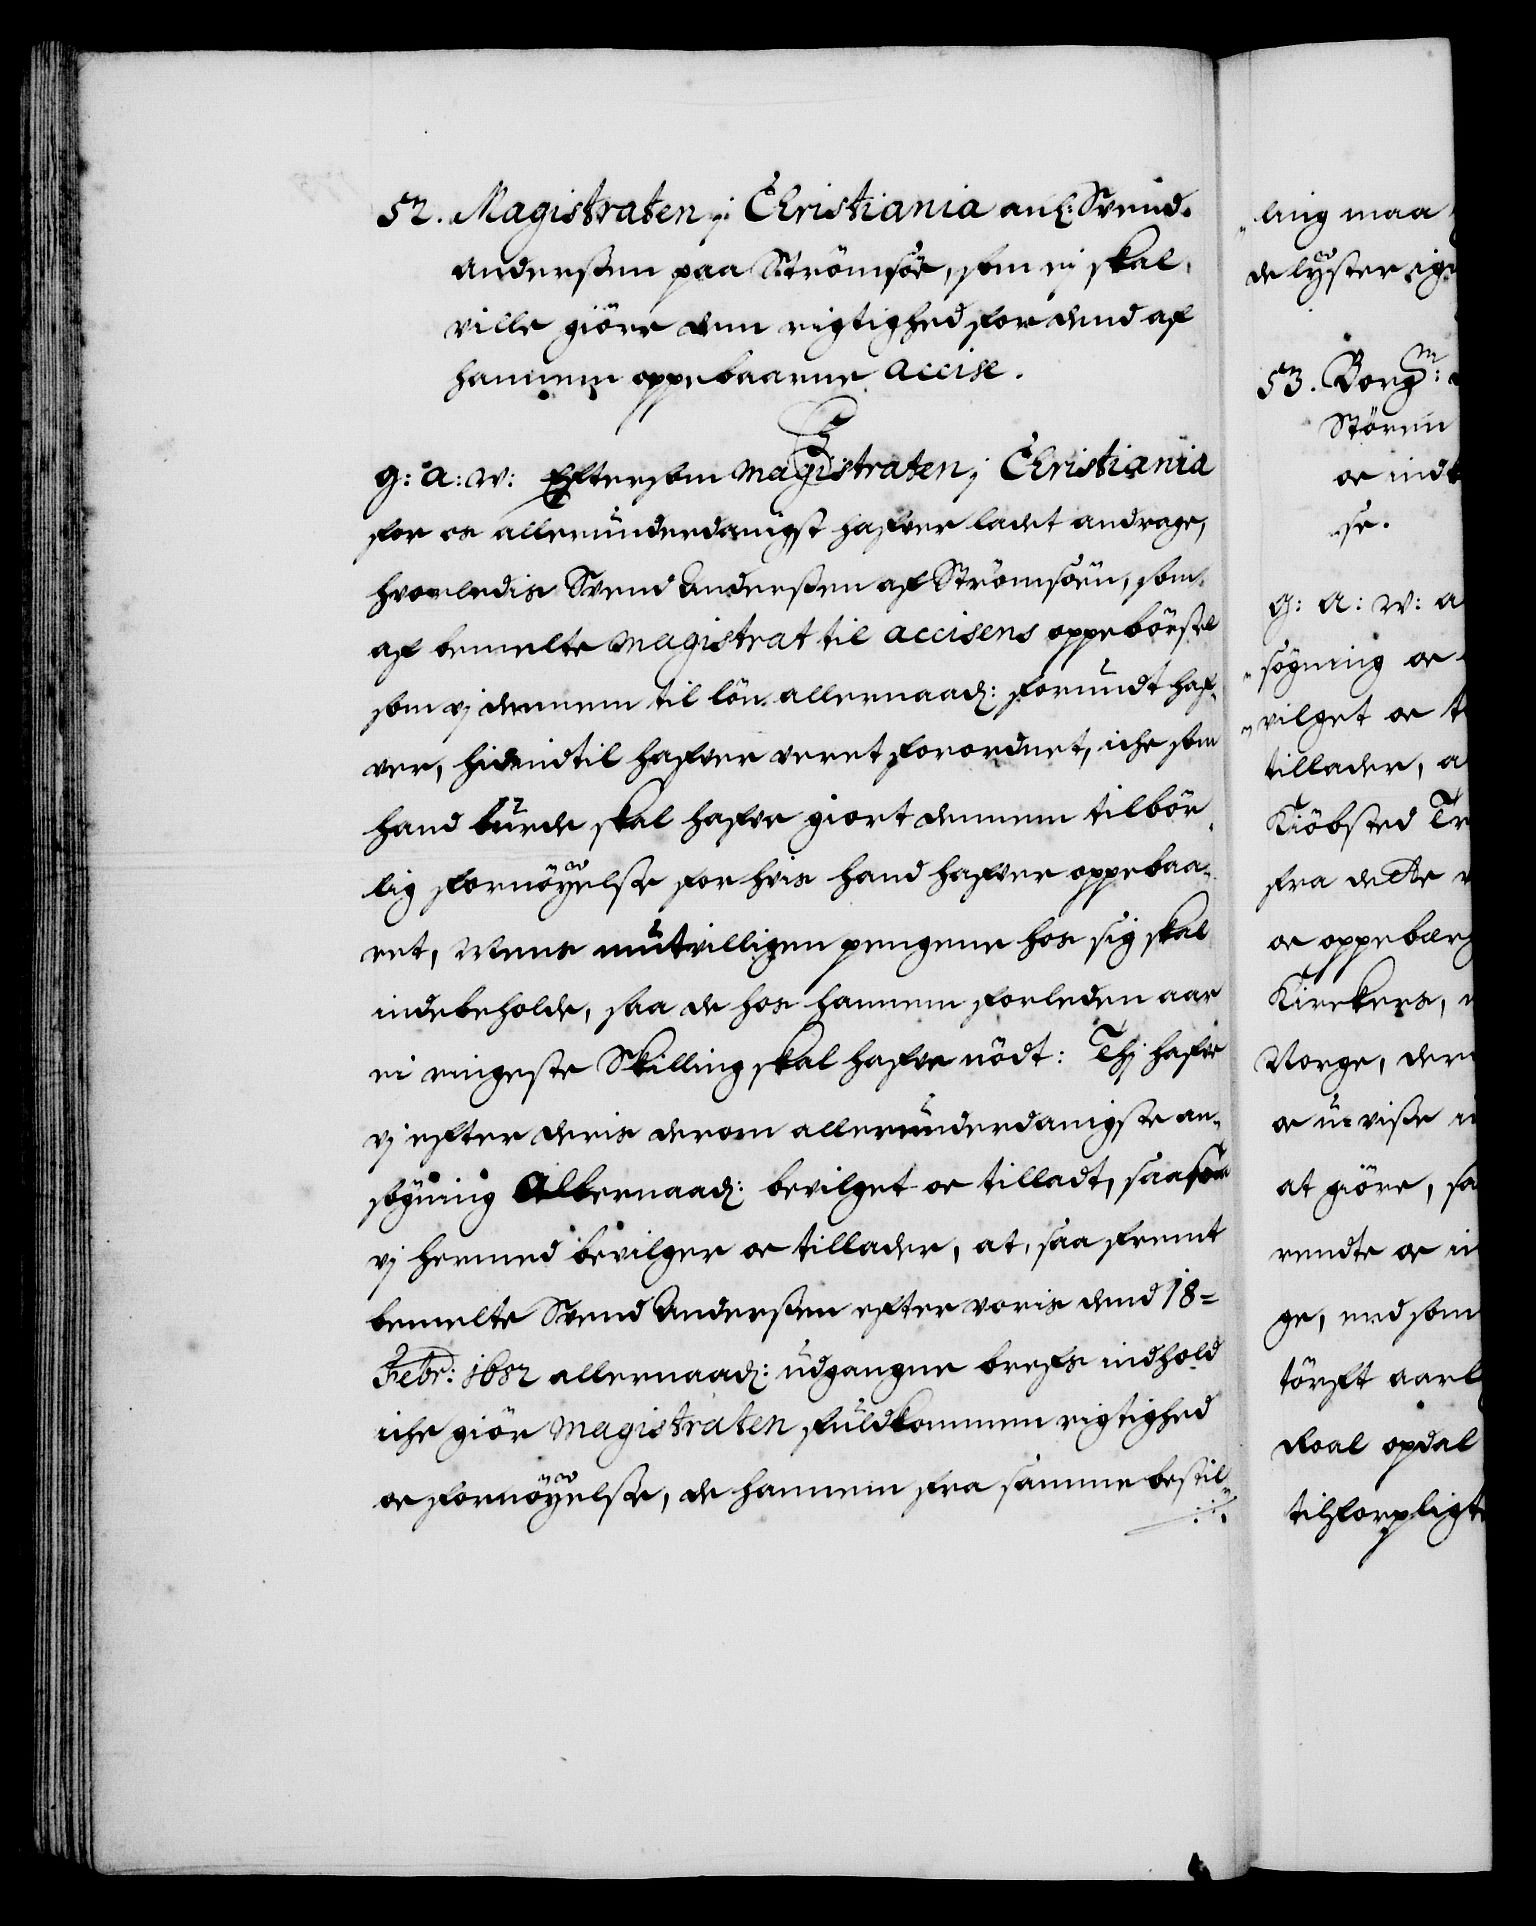 52. Magistraten j Christiania anl: Svend
Anderßen paa Strömsöe, som ej skal
ville giöre dem rigtighed for dend af
hannem oppebaarne accise.
G: A: V: Eftersom Magistraten j Christiania
for os allerunderdanigst hafver ladet andrage,
hvorledis Svend Anderßen af Strömsöen, som
af bemelte magistrat til accisens oppebörsel
som vj dennem til lön allernaad: forundt haf-
ver, hidindtil hafver veret forordnet, iche som
hand burde skal hafve giort dennem tilbör-
lig fornöyelße for hvis hand hafver oppebaa-
ret, Mens mutvilligen pengene hos sig skal
indebeholde, saa de hos hannem forleden aar
ei ringeste Skilling skal hafve nödt: Thj hafve
vj efter deris derom allerunderdanigste an-
sögning Allernaad: bevilget oc tilladt, saasom
vj hermed bevilger oc tillader, at, saa fremt
bemelte Svend Anderßen efter voris dend 18=
Febr: 1682 allernaad: udgangne brefs indhold
iche giör magistraten fuldkommen rigtighed
oc fornöyelße, de hannem fra samme bestil-
ling maa
de lyster ige
53. Borgm:
Stören
oc indt
se.
G: A: V: a
sögning oc
vilget oc t
tillader, a
Kiöbsted Tr
fra dette
oc oppebærg
Kirckers,
Norge, der
oc uvisse
at giöre, sa
rendte oc in
ge, end som
törft aarl
Roal opdal
tilforpligt